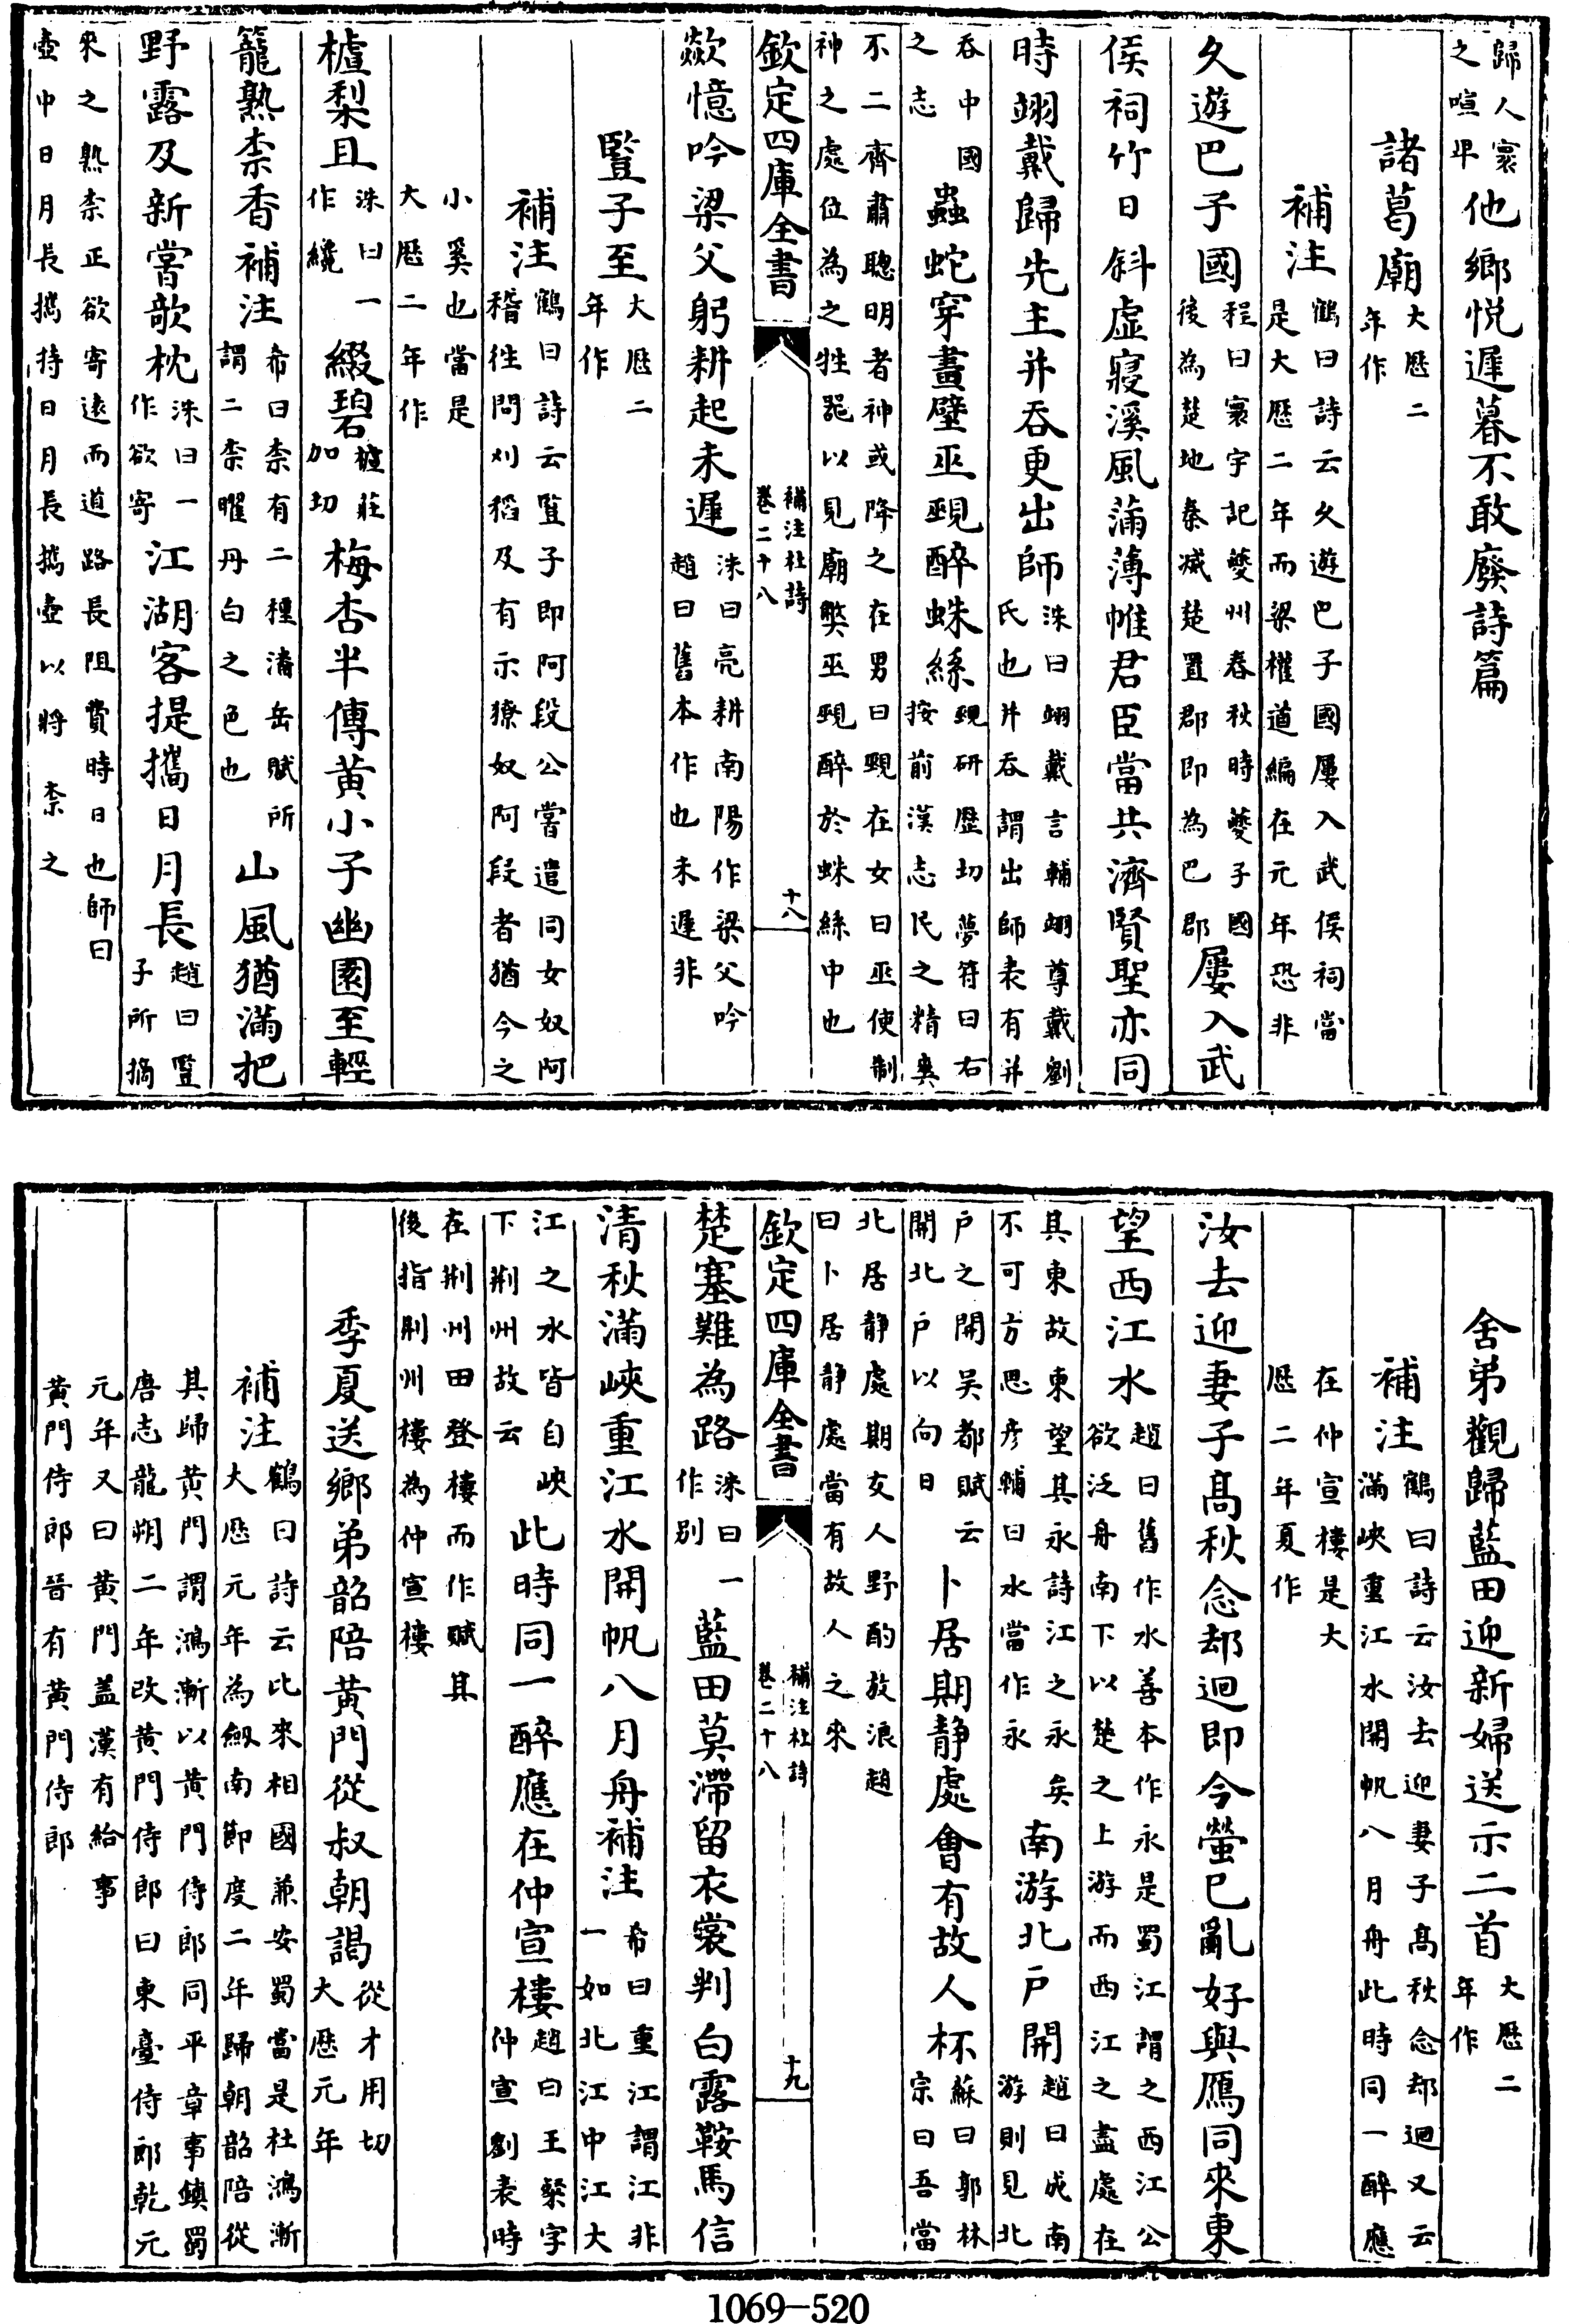 歸人寰之喧卑他鄉悅遲暮不敢廢詩篇
諸葛廟大厯二年作
補注鶴曰詩云久遊巴子國屢入武侯祠當是大厯二年而梁權道編在元年恐非
久遊巴子國程曰寰宇記夔州春秋時夔子國後為楚地秦滅楚置郡即為巴郡屢入武
侯祠竹日斜虛寢溪風滿薄帷君臣當共濟賢聖亦同
時翊戴歸先主并吞更出師洙曰翊戴言輔翊尊戴劉氏也并吞謂出師表有并
吞中國之志蟲蛇穿畫壁巫覡醉蛛絲覡研歴切夢符曰右按前漢志民之精爽
不二齊肅聰明者神或降之在男曰覡在女曰巫使制神之處位為之牲器以見廟弊巫覡醉於蛛絲中也
欽定四庫全書 補注杜詩卷二十八 十八
歘憶吟梁父躬耕起未遲洙曰亮耕南陽作梁父吟趙曰舊本作也未遲非
豎子至大厯二年作
補注鶴曰詩云豎子即阿段公嘗遣同女奴阿稽徃問刈稻及有示獠奴阿段者猶今之
小奚也當是大厯二年作
樝梨且洙曰一作纔綴碧樝莊加切梅杏半傳黄小子幽園至輕
籠熟柰香補注希曰柰有二種潘岳賦所謂二柰曜丹白之色也山風猶滿把
野露及新嘗欹枕洙曰一作欲寄江湖客提攜日月長趙曰豎子所摘
來之熟柰正欲寄遠而道路長阻費時日也師曰壺中日月長攜持日月長攜壺以將柰之
舍弟觀歸藍田迎新婦送示二首大厯二年作
補注鶴曰詩云汝去迎妻子髙秋念却迴又云滿峽重江水開帆八月舟此時同一醉應
在仲宣樓是大厯二年夏作
汝去迎妻子髙秋念却迴即今螢已亂好與鴈同來東
望西江水趙曰舊作水善本作永是蜀江謂之西江公欲泛舟南下以楚之上游而西江之盡處在
其東故東望其永詩江之永矣不可方思彦輔曰水當作永南游北戸開趙曰成南游則見北
戸之開吴都賦云開北戸以向日卜居期静處㑹有故人杯蘇曰郭林宗曰吾當
北居静處期友人野酌放浪趙曰卜居静處當有故人之來
欽定四庫全書 補注杜詩卷二十八 十九
楚塞難為路洙曰一作别藍田莫滯留衣裳判白露鞍馬信
清秋滿峽重江水開帆八月舟補注希曰重江謂江非一如北江中江大
江之水皆自峽下荆州故云此時同一醉應在仲宣樓趙曰王粲字仲宣劉表時
在荆州田登樓而作賦其後指荆州樓為仲宣樓
季夏送鄉弟韶陪黄門從叔朝謁從才用切大厯元年
補注鶴曰詩云比來相國兼安蜀當是杜鴻漸大厯元年為劔南節度二年歸朝韶陪從
其歸黄門謂鴻漸以黄門侍郎同平章事鎮蜀唐志龍朔二年改黄門侍郎曰東臺侍郎乾元
元年又曰黄門盖漢有給事黄門侍郎晉有黄門侍郎
1069—520